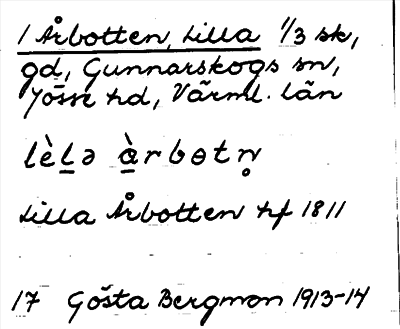 1 Årbotten, Lilla 1/3 sk,
gd, Gunnarskogs sn,
Jösse hd, Värml. län
lèl̲ə à̲rbɵtn̥
Lilla Årbotten hf 1811
17 Gösta Bergman 1913-14